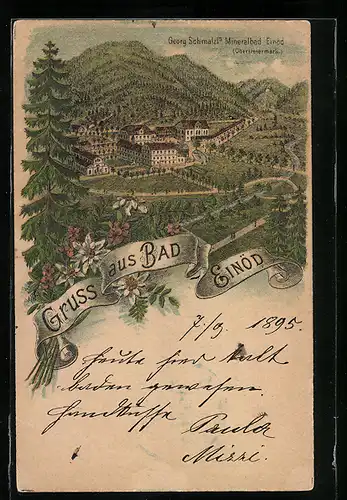 Georg Schmalzl's Mineralbad Einöd
(Obersteiermark)
Gruss aus BAD EINÖD
7./9. 1895.
heute hier kalt
baden gewesen.
Handküsse Paula
Mizzi.